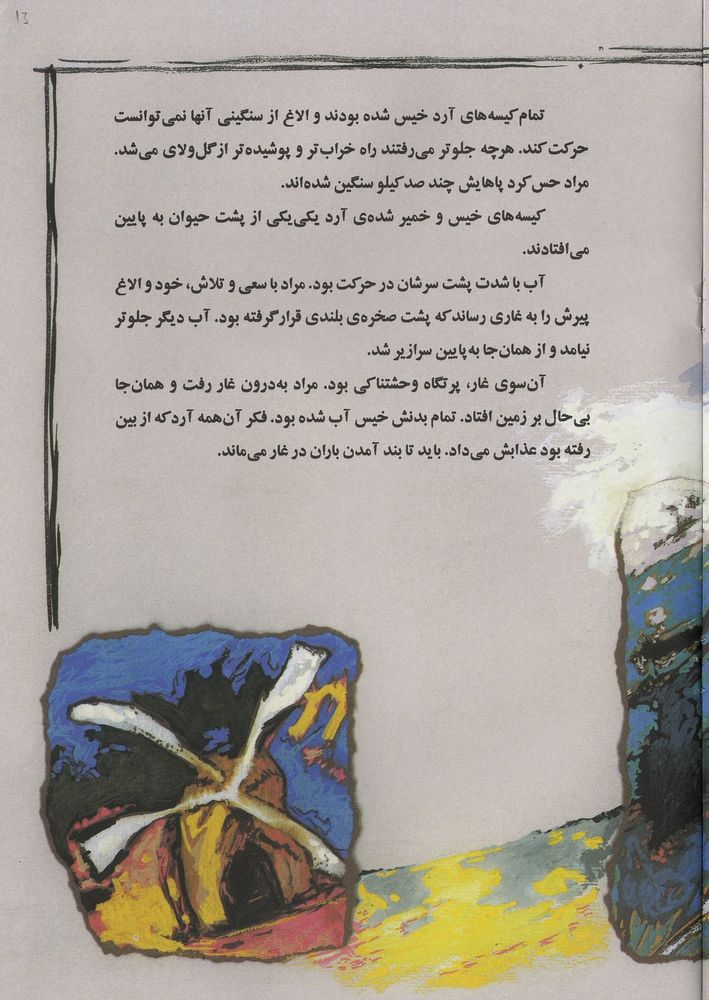 ۱۳
تمام کیسه‌های آرد خیس شده بودند و الاغ از سنگینی آنها نمی‌توانست
حرکت کند. هرچه جلوتر می‌رفتند راه خراب‌تر و پوشیده‌تر از گل‌ولای می‌شد.
مراد حس کرد پاهایش چند صد کیلو سنگین شده‌اند.
کیسه‌های خیس و خمیر شده‌ی آرد یکی‌یکی از پشت حیوان به پایین
می‌افتادند.
آب با شدت پشت سرشان در حرکت بود. مراد با سعی و تلاش، خود و الاغ
پیرش را به غاری رساند که پشت صخره‌ی بلندی قرار گرفته بود. آب دیگر جلوتر
نیامد و از همان‌جا به پایین سرازیر شد.
آن‌سوی غار، پرتگاه وحشتناکی بود. مراد به‌درون غار رفت و همان‌جا
بی‌حال بر زمین افتاد. تمام بدنش خیس آب شده بود. فکر آن‌همه آرد که از بین
رفته بود عذابش می‌داد. باید تا بند آمدن باران در غار می‌ماند.